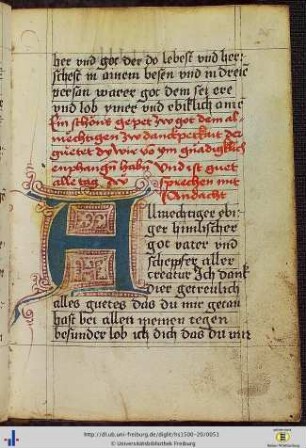 her vnd got der do lebest vnd her/
schest in ainem wesen vnd in dreien
person warer got dem sei ere
vnd lob ymer vnd ebiklich ame
Ein schöns gepet zw got dem al
mechtigen zw danckperkait der
guetet dy wir vo ym gnadigklich
enphangn habn Vnd ist guet
alle tag zw sprechen mit
Andacht
Allmechtiger ebi
ger himlischer
got vater vnd
schepfer aller
creatur Ich dank
dier getreulich
alles guetes das du mir getan
hast bei allen meinen tegen
besunder lob ich dich das du mir
http://dl.ub.uni-freiburg.de/diglit/hs1500-20/0053
© Universitätsbibliothek Freiburg